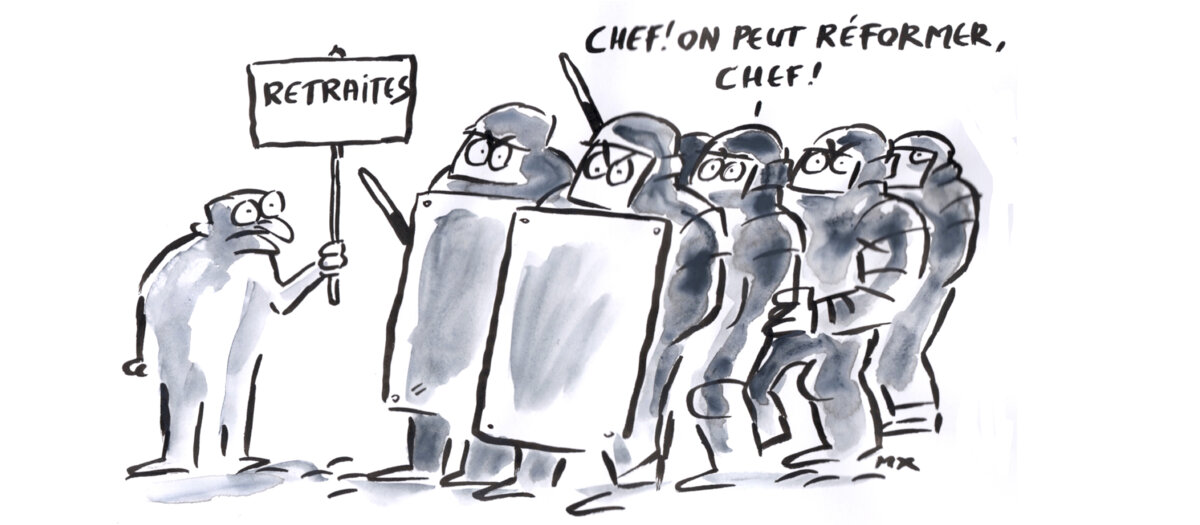 CHEF! ON PEUT RÉFORMER,
CHEF!
RETRAITES